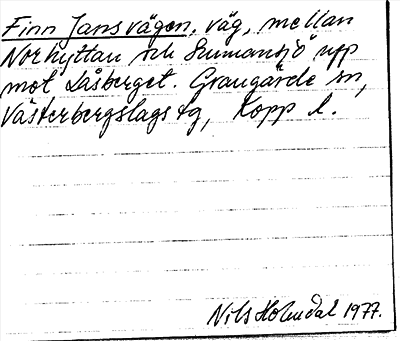 Finn Jansvägen, väg, mellan
Norhyttan och Sumansjö upp
mot Låsberget. Grangärde sn,
Västerbergslags tg, Kopp l.
Nils Holmdal 1977.